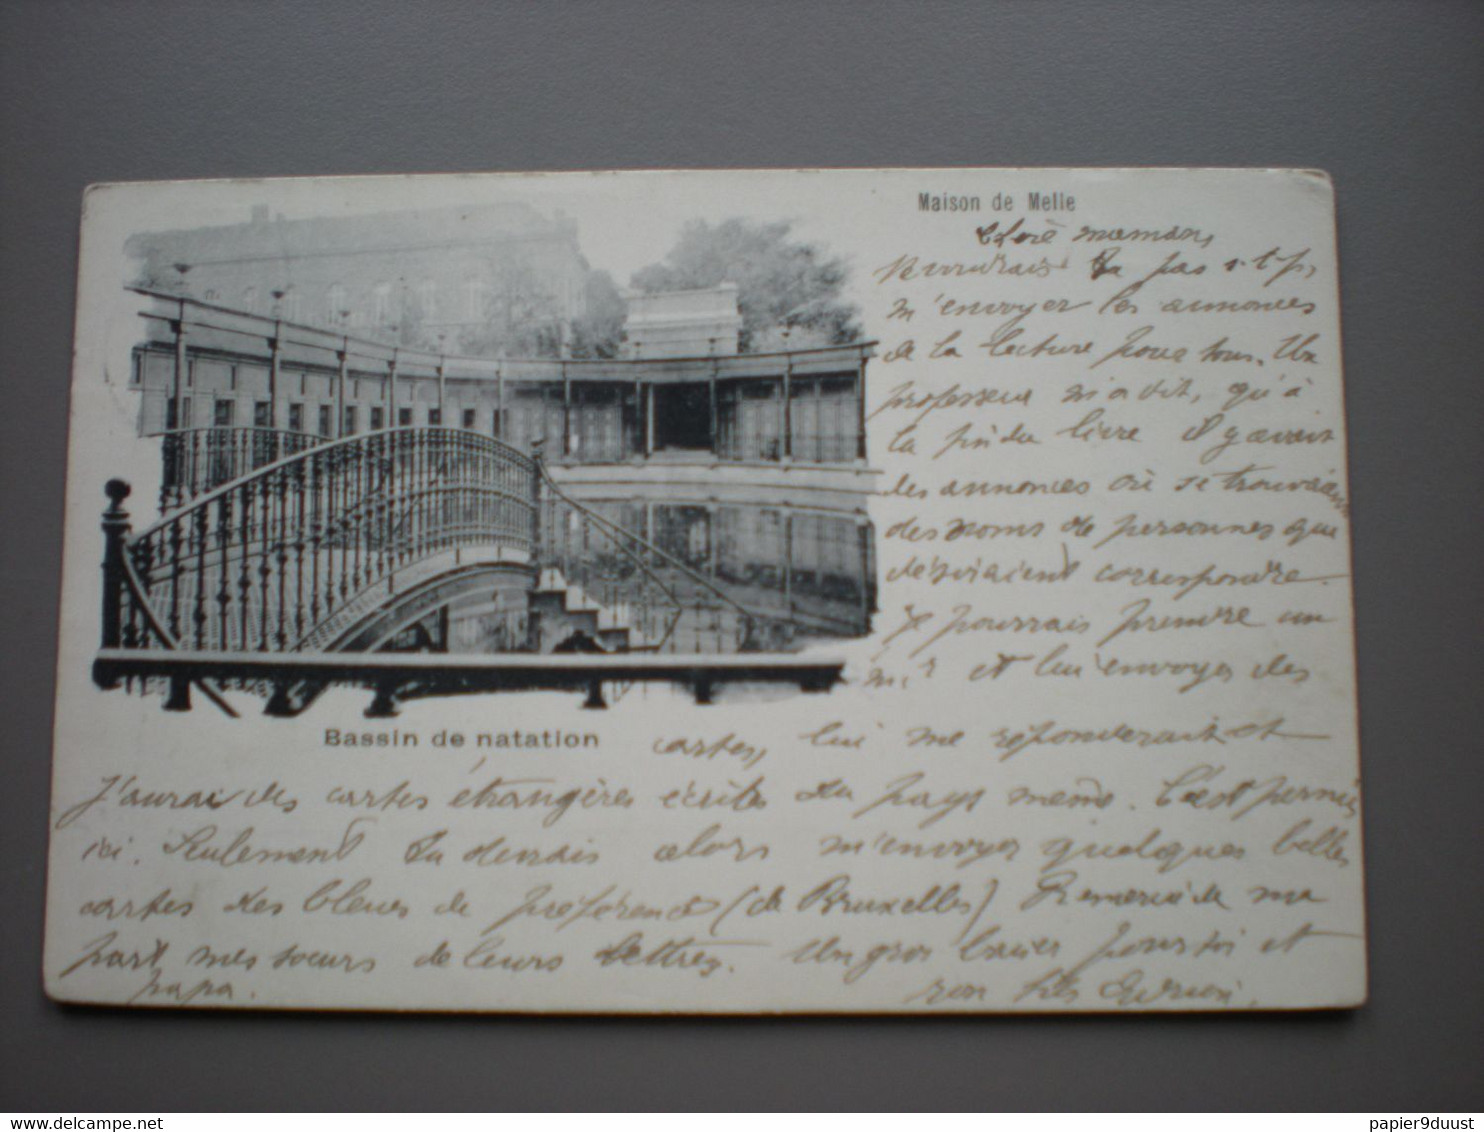 Maison de Melle
Chère maman,
Voudrais tu pas s.t.p,
m'envoyer les annonces
de la lecture pour tous. Un
professeur m'a dit, qu'à
la fin du livre il y avait
des annonces où se trouvaient
des noms de personnes que
désiraient correspondre.
je pourrais prendre un
et lui envoyer des
Bassin de natation
cartes, lui me répondrait et
J'aurai des cartes étrangères écrites du pays même. C'est permis
ici. Seulement tu devrais alors m'envoyer quelques belles
cartes des bleues de préférence (de Bruxelles) Remercie de ma
part mes sœurs de leurs lettres. Un gros baiser pour toi et
papa. ton fils
papier9duust
www.delcampe.net